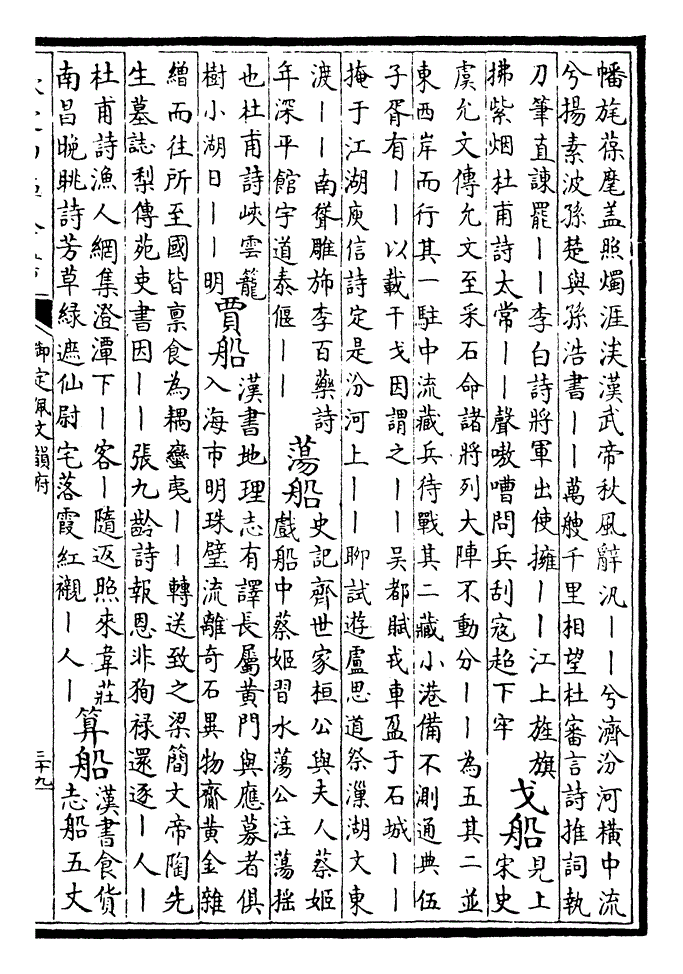 幡旄葆麾盖照燭涯涘漢武帝秋風辭汎丨丨兮濟汾河橫中流
兮揚素波孫楚與孫浩書丨丨萬艘千里相望杜審言詩推詞執
刀筆直諫罷丨丨李白詩將軍出使擁丨丨江上旌旗
拂紫烟杜甫詩太常丨丨聲嗷嘈問兵刮寇超下牢
戈船
見上
宋史
虞允文傳允文至采石命諸將列大陣不動分丨丨為五其二並
東西岸而行其一駐中流藏兵待戰其二藏小港備不測通典伍
子胥有丨丨以載干戈因謂之丨丨吳都賦戎車盈于石城丨丨
掩于江湖庾信詩定是汾河上丨丨聊試遊盧思道祭漅湖文東
渡丨丨南聳雕斾李百藥詩
年深平館宇道泰偃丨丨
蕩船
史記齊世家桓公與夫人蔡姬
戲船中蔡姬習水蕩公注蕩揺
也杜甫詩峽雲籠
樹小湖日丨丨明
賈船
漢書地理志有譯長屬黄門與應募者俱
入海市明珠璧流離奇石異物齎黄金雜
繒而往所至國皆稟食為耦蠻夷丨丨轉送致之梁簡文帝陶先
生墓誌梨傳苑吏書因丨丨張九齡詩報恩非狥禄還逐丨人丨
杜甫詩漁人網集澄潭下丨客丨隨返照來韋莊
南昌晚眺詩芳草緑遮仙尉宅落霞紅襯丨人丨
算船
漢書食貨
志船五丈
御定佩文韻府
三十九